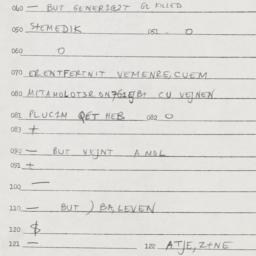 040 — BUT GENERIEZT GE KILLED
050 STEMEDIK 051 . O
060 O
070 ERENTFERTNIT VEMENRE,CUEM
080 CU VEJNEN
081 PLUCIM QET HEB 082 O
083 +
090 — BUT VEJNT A MOL
091 +
100 —
110 — BUT ) BALEVEN
120 $
121 — 122 ATJE,Z+NE